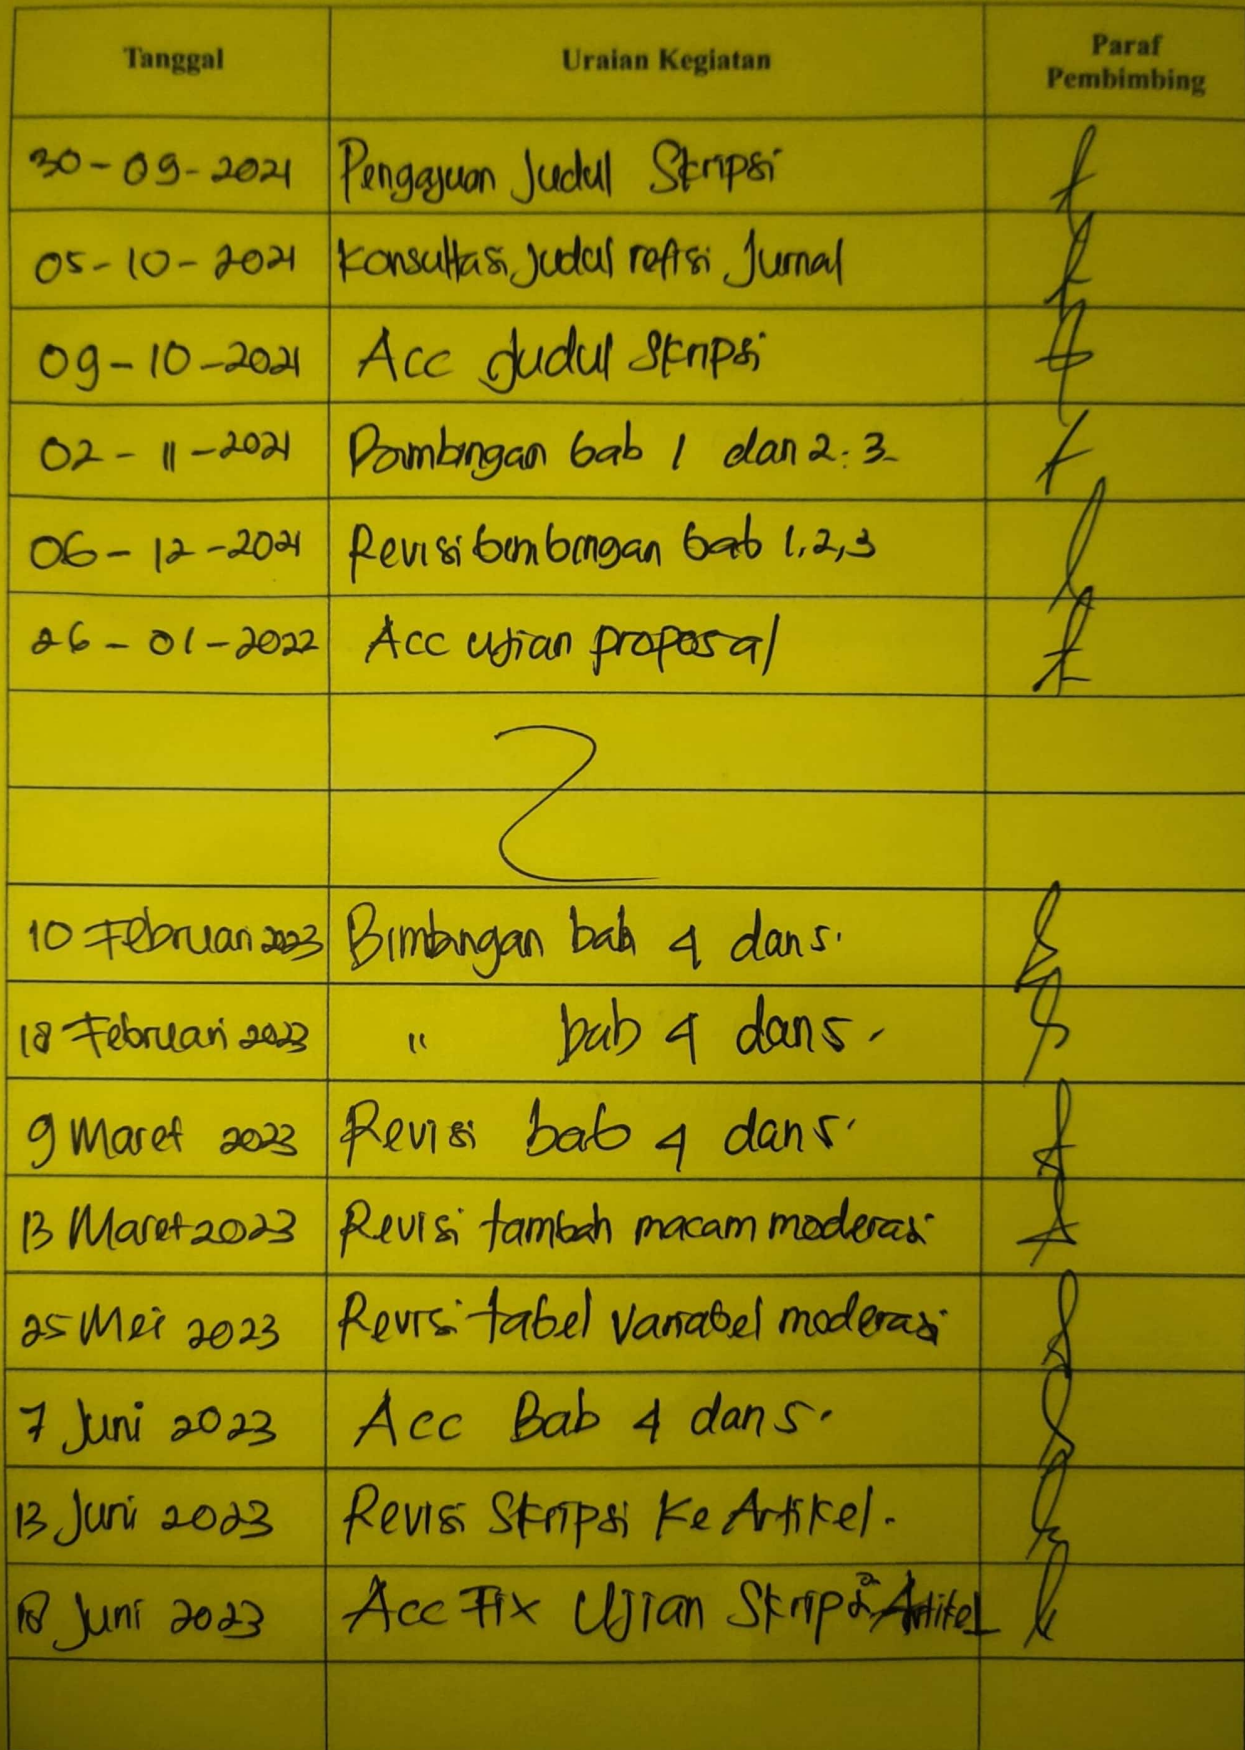 Tanggal Uraian Kegiatan Paraf Pembimbing
30-09-2021 Pengajuan Judul Skripsi
05-10-2021 Konsultasi Judul refisi Jurnal
09-10-2021 Acc Judul Skripsi
02-11-2021 bab 1 dan 2. 3.
06-12-2021 Revisi bimbingan bab 1,2,3
26-01-2022 Acc ujian proposal
10 Februari 2023 Bimbingan bab 4 dan 5.
18 Februari 2023 " bab 4 dan 5.
9 Maret 2023 Revisi bab 4 dan 5.
13 Maret 2023 Revisi tambah macam moderasi
25 Mei 2023 Revisi tabel variabel moderasi
7 Juni 2023 Acc Bab 4 dan 5.
13 Juni 2023 Revisi Skripsi Ke Artikel.
Juni 2023 Acc Fix Ujian Artikel